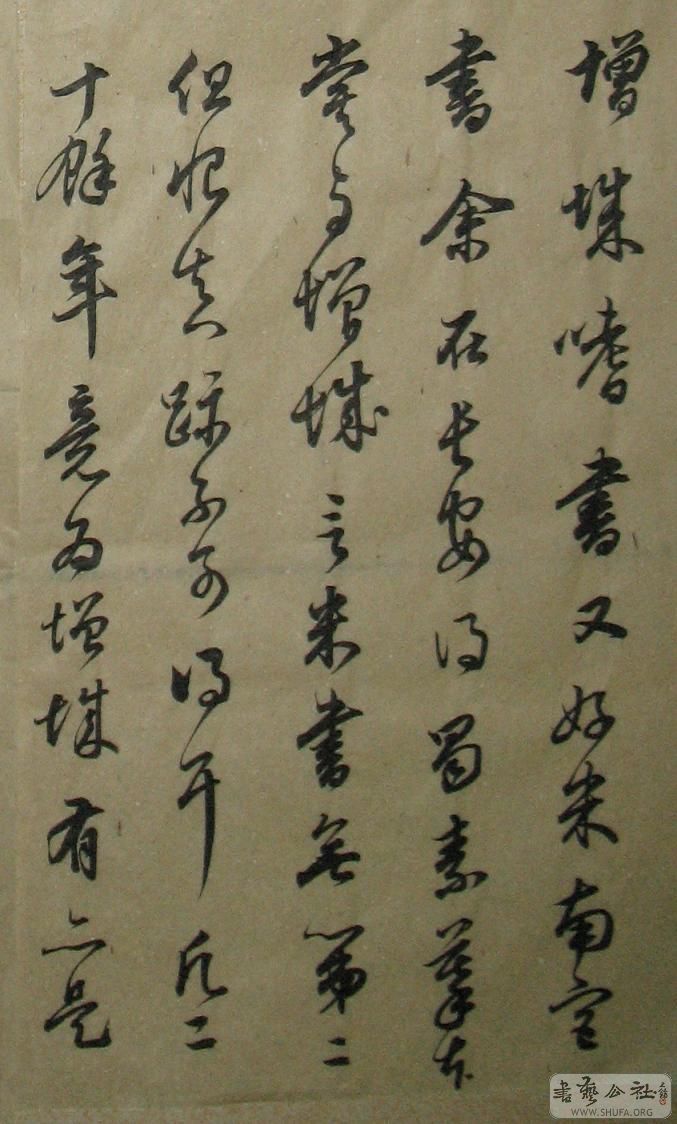 增城嗜書又好米南宮
書余在長安得蜀素摹本
嘗与增城言米書無第二
但恨真跡不可得耳凡二
十餘年竟為增城有亦是
書藝公社
WWW.SHUFA.ORG